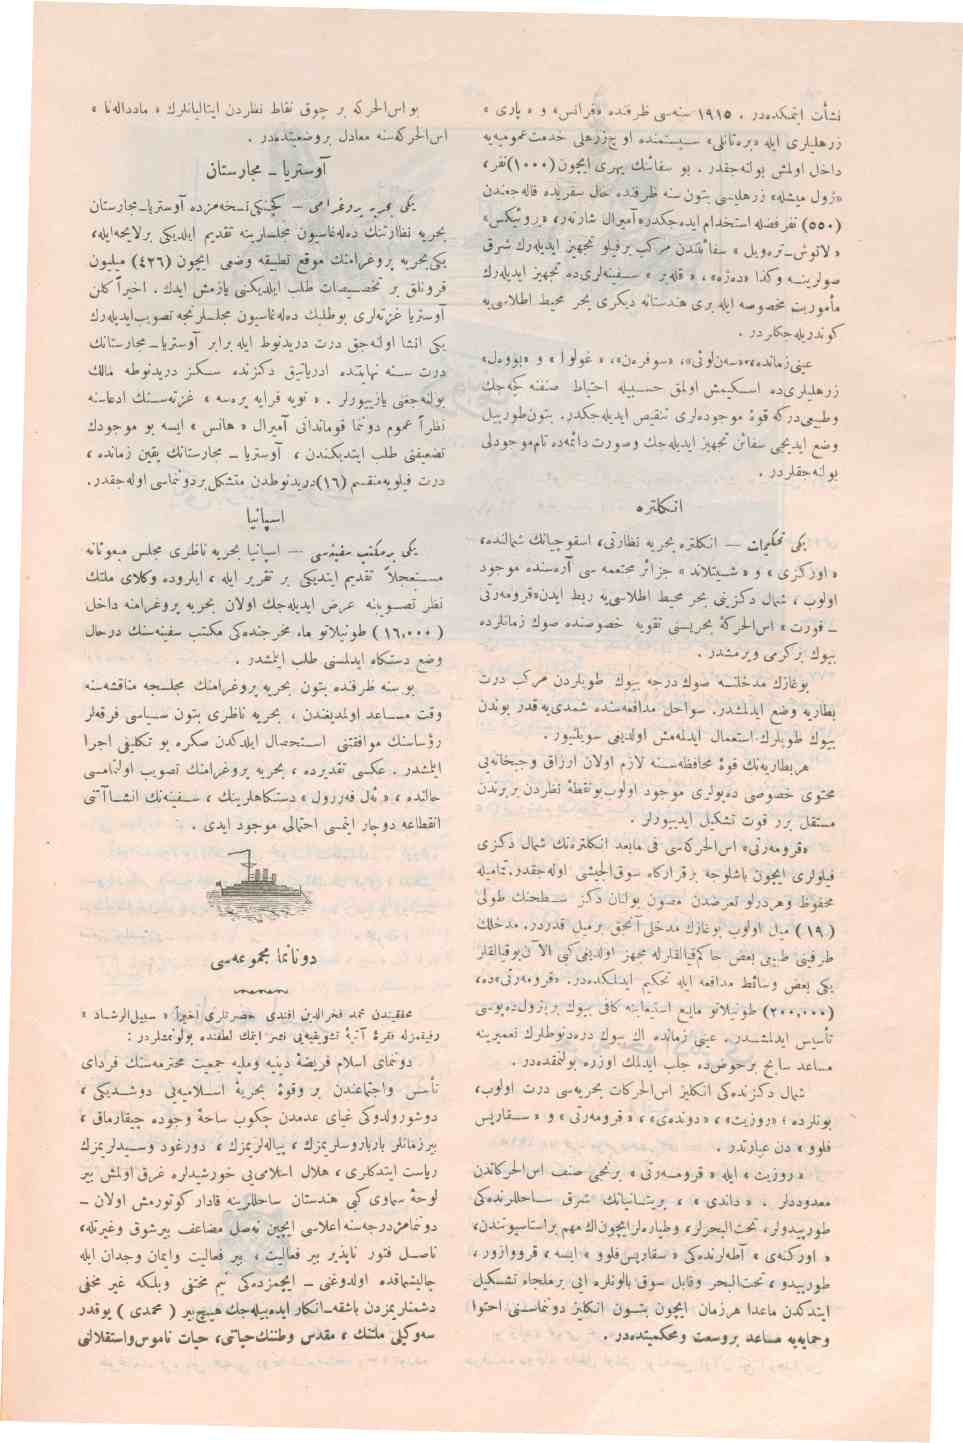 نشأت ایتمکده‌در . ١٩١٥ سنه‌سی ظرفنده «فرانس» و « پاری »
زرهلیلری ایله «بره‌تانلی» سیستمنده اوچ زرهلی خدمت عمومیه‌یه
داخل اولمش بولنه‌جقدر . بو سفائنك بهری ایچون (١٠٠٠) نفر ،
«ژول میشله» زرهلیسی بتون سنه ظرفنده حال سفریده قاله‌جغندن
(٥٥٠) نفر فضله استخدام ایده‌جکدر. آمیرال شارنه‌ر، «بروئیکس»
« لاتوش‌ـ‌تره‌ویل » سفائنندن مرکب برفیلو تجهیز ایدیله‌رك شرق
صولرینه وکذا «ده‌ژه» ، « قله‌بر » سفینه‌لری‌ده تجهیز ایدیله‌رك
مأموریت مخصوصه ایله بری هندستانه دیکری بحر محیط اطلاسی‌یه
کوندریله‌جکلردر .
عینی زمانده، «سه‌ن‌لوئی» ، «سوفره‌ن» ، « غولوا » و «بووه‌ل»
زرهلیلری‌ده اسکیمش اولمق حسبیله احتیاط صنفنه کچه‌جك
وطبیعی‌درکه قوهٔ موجوده‌لری تنقیص ایدیله‌جکدر. بتون طورپیل
وضع ایدیجی سفائن تجهیز ایدیله‌جك وصورت دائمه‌ده تام موجودلی
بولنه‌جقلردر .
انکلتره
یکی تحکیمات — انکلتره بحریه نظارتی، اسقوچیانك شمالنده،
« اورکنزی » و « شیتلاند » جزائر مجتمعه سی آره‌سنده موجود
اولوب ، شمال دکزینی بحر محیط اطلاسی‌یه ربط ایدن «قرومه‌رتی
ـ فورت» اس‌الحرکهٔ بحریسنی تقویه خصوصنده صوك زمانلرده
بیوك برکرمی ویرمشدر .
بوغازك مدخلنه صوك درجه بیوك طوپلردن مرکب درت
بطاریه وضع ایدلمشدر. سواحل مدافعه‌سنده شمدی‌یه قدر بوندن
بیوك طوپلرك استعمال ایدلمه‌مش اولدیغی سویلنیور .
هر بطاریه‌نك قوهٔ محافظه‌سنه لازم اولان ارزاق وجبخانه‌یی
محتوی خصوصی ده‌پولری موجود اولوب بونقطهٔ نظردن بربرندن
مستقل برر قوت تشکیل ایدییورلر .
«قرومه‌رتی» اس‌الحرکه‌سی فی مابعد انکلتره‌نك شمال دکزی
فیلولری ایچون باشلوجه برقرارکاه سوق‌الجیشی اوله‌جقدر. تمامیله
محفوظ وهردرلو تعرضدن مصون بولنان دکز سطحنك طولی
(١٩) میل اولوب بوغازك مدخلی آنجق برمیل قدردر. مدخلك
طرفینی طبیعی بعض حاکم قیالقلرله مجهز اولدیغی کبی الآن بوقیالقلر
یکی بعض وسائط مدافعه ایله تحکیم ایدلمکده‌در. «قرومه‌رتی»ده،
(٢٠٠,٠٠٠) طونیلاتو مایع استیعابنه کافی بیوك برپترول ده‌پوسی
تأسیس ایدلمشدر . عینی زمانده اك بیوك دره‌دنوطلرك تعمیرینه
مساعد سابح برحوض‌ده جلب ایدلمك اوزره بولنمقده‌در .
شمال دکزنده‌کی انکلیز اس‌الحرکات بحریه‌سی درت اولوب،
بونلرده ؛ «روزیت» ، «دونده‌ی» ، « قرومه‌رتی » و « سقاپس
فلوو » دن عبارتدر .
« روزیت » ایله « قرومه‌رتی » برنجی صنف اس‌الحرکاتدن
معدوددلر . « داندی » ، بریتانیانك شرق ساحللرنده‌کی
طورپیدولر، تحت‌البحرلر، وطیاره‌لر ایچون اك مهم براستاسیوندن،
« اورکنه‌ی » آطه‌لرنده‌کی « سقاپس فلوو » ایسه ، قرووازور،
طورپیدو ، تحت‌البحر وقابل سوق بالونلره ایی برملجاء تشکیل
ایتدکدن ماعدا هرزمان ایچون بتون انکلیز دوننماسنی احتوا
وحمایه‌یه مساعد بروسعت ومحکمیتده‌در .
بو اس‌الحرکه بر چوق نقاط نظردن ایتالیانلرك « ماددالنا »
اس‌الحرکه‌سنه معادل بروضعیتده‌در .
آوستریا ـ مجارستان
یکی بحریه پروغرامی — کچنکی نسخه‌مزده آوستریا‌ـ‌مجارستان
بحریه نظارتنك ده‌له‌غاسیون مجلسلرینه تقدیم ایلدیکی برلایحه‌ایله،
یکی بحریه پروغرامنك موقع تطبیقه وضعی ایچون (٤٢٦) میلیون
قرونلق بر تخصیصات طلب ایلدیکنی یازمش ایدك . اخیراً کلن
آوستریا غزته‌لری بوطلبك ده‌له‌غاسیون مجلسلرنجه تصویب ایدیله‌رك
یکی انشا اولنه‌جق درت دریدنوط ایله برابر آوستریا‌ـ‌مجارستانك
درت سنه نهایتنده ادریاتیق دکزنده سکز دریدنوطه مالك
بولنه‌جغنی یازییورلر . « نویه فرایه پره‌سه » غزته‌سنك ادعاسنه
نظراً عموم دوننما قوماندانی آمیرال « هانس » ایسه بو موجودك
تضعیفنی طلب ایتدیکندن ، آوستریا ـ مجارستانك یقین زمانده ،
درت فیلویه‌منقسم (١٦) دریدنوطدن متشکل بردوننماسی اوله‌جقدر.
اسپانیا
یکی بر مکتب سفینه‌سی — اسپانیا بحریه ناظری مجلس مبعوثانه
مستعجلاً تقدیم ایتدیکی بر تقریر ایله ، ایلروده وکلای ملتك
نظر تصویبنه عرض ایدیله‌جك اولان بحریه پروغرامنه داخل
(١٦,٠٠٠) طونیلاتو ماء مخرجنده‌کی مکتب سفینه‌سنك درحال
وضع دستکاه ایدلمسنی طلب ایلمشدر .
بو سنه ظرفنده بتون بحریه پروغرامنك مجلسجه مناقشه‌سنه
وقت مساعد اولمدیغندن ، بحریه ناظری بتون سیاسی فرقه‌لر
رؤساسنك موافقتنی استحصال ایلدکدن صکره بو تکلیفی اجرا
ایلمشدر . عکسی تقدیرده ، بحریه پروغرامنك تصویب اولنمامسی
حالنده ، « ئه‌ل فه‌ررول » دستکاهلرینك ، سفینه‌نك انشاآتنی
انقطاعه دوچار ایتمسی احتمالی موجود ایدی .
دوننما مجموعه‌سی
محققیندن محمد فخرالدین افندی حضرتلری اخیراً « سبیل‌الرشاد »
رفیقمزله فقرهٔ آتیهٔ تشویقیه‌یی نشر ایتمك لطفنده بولونمشلردر :
دوننمای اسلام فریضهٔ دینیه وملیه جمعیت محترمه‌سنك فردای
تأسس واجتماعندن بر وقوهٔ بحریهٔ اسلامیه‌یی دوشدیکی ،
دوشورولدوکی غیای عدمدن چکوب ساحهٔ وجوده چیقارماق ،
بیرزمانلر بارباروسلریمزك ، پیاله‌لریمزك ، دورغود وسیدلریمزك
ریاست ایتدکلری ، هلال اسلامی‌یی خورشیدلره غرق اولمش بیر
لوحهٔ سماوی کبی هندستان ساحللرینه قادار کوتورمش اولان ـ
دوننمامزدرجه‌سنه اعلاسی ایچین نه‌صل مضاعف بیرشوق وغیرتله،
ناصل فتور ناپذیر بیر فعالیت ، بیر فعالیت وایمان وجدان ایله
چالیشماقده اولدوغنی ـ ایچمزده‌کی نیم مختفی وبلکه غیر مخفی
دشمنلریمزدن باشقه‌ـ‌انکار ایده‌بیله‌جك هیچ‌بیر (محمدی) یوقدر
سه‌وکیلی ملتك ، مقدس وطننك حیاتی، حیات ناموس واستقلالنی